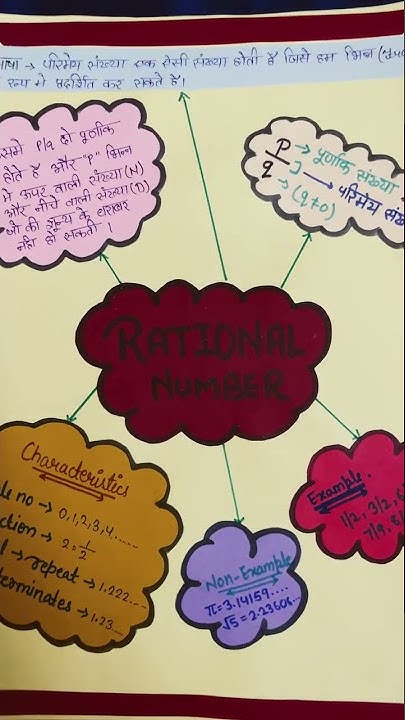 परिमेय संख्या एक ऐसी संख्या होती है जिसे हम भिन्न
रूप मे प्रदर्शित कर सकते है।
P/q हो पूर्णांक
होते है और "P" भिन्न
मे ऊपर वाली संख्या (N)
और नीचे वाली संख्या (D)
जो की शून्य के बराबर
नही हो सकती।
P/q → पूर्णांक संख्या
→ परिमेय
→ (q≠0)
RATIONAL
NUMBER
Characteristics
no → 0,1,2,3,4.....
→ 2 = 1/2
→ repeat → 1.222...
→ 1.23...
Example.
1/2, 3/2,
7/9,
Non-Example
π=3.14159....
√5=2.23606...